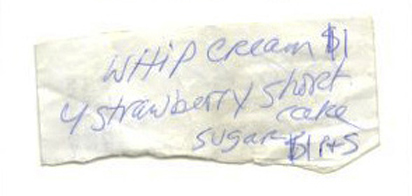 WHIP cream $1
4 strawberry short
cake
sugar $1 P+S